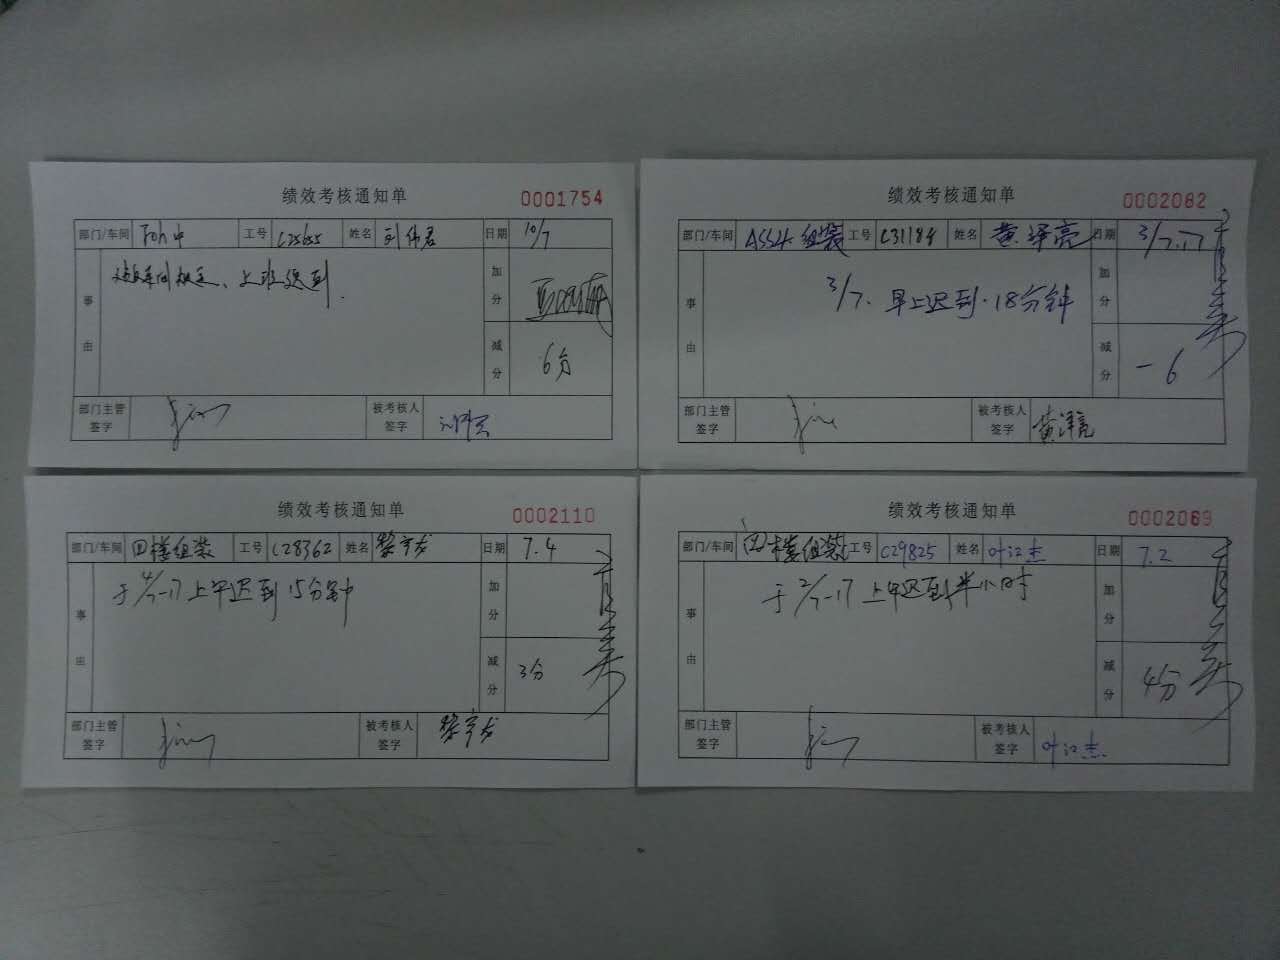 绩效考核通知单 0001754
部门/车间 工号 C25655 姓名 日期 10/7
事由 上班迟到.
加分
减分 6分
部门主管签字 被考核人签字
绩效考核通知单 0002082
部门/车间 ASS4. 组装 工号 C31184 姓名 黄泽亮 日期 3/7.17
事由 3/7. 早上迟到.18分钟
加分
减分 -6
部门主管签字 被考核人签字 黄泽亮
绩效考核通知单 0002110
部门/车间 四楼组装 工号 C28362 姓名 日期 7.4
事由 于4/7-17上午迟到15分钟
加分
减分 3分
部门主管签字 被考核人签字
绩效考核通知单 0002069
部门/车间 四楼组装 工号 C29825 姓名 叶江杰 日期 7.2
事由 于2/7-17 上午迟到半小时
加分
减分 4分
部门主管签字 被考核人签字 叶江杰